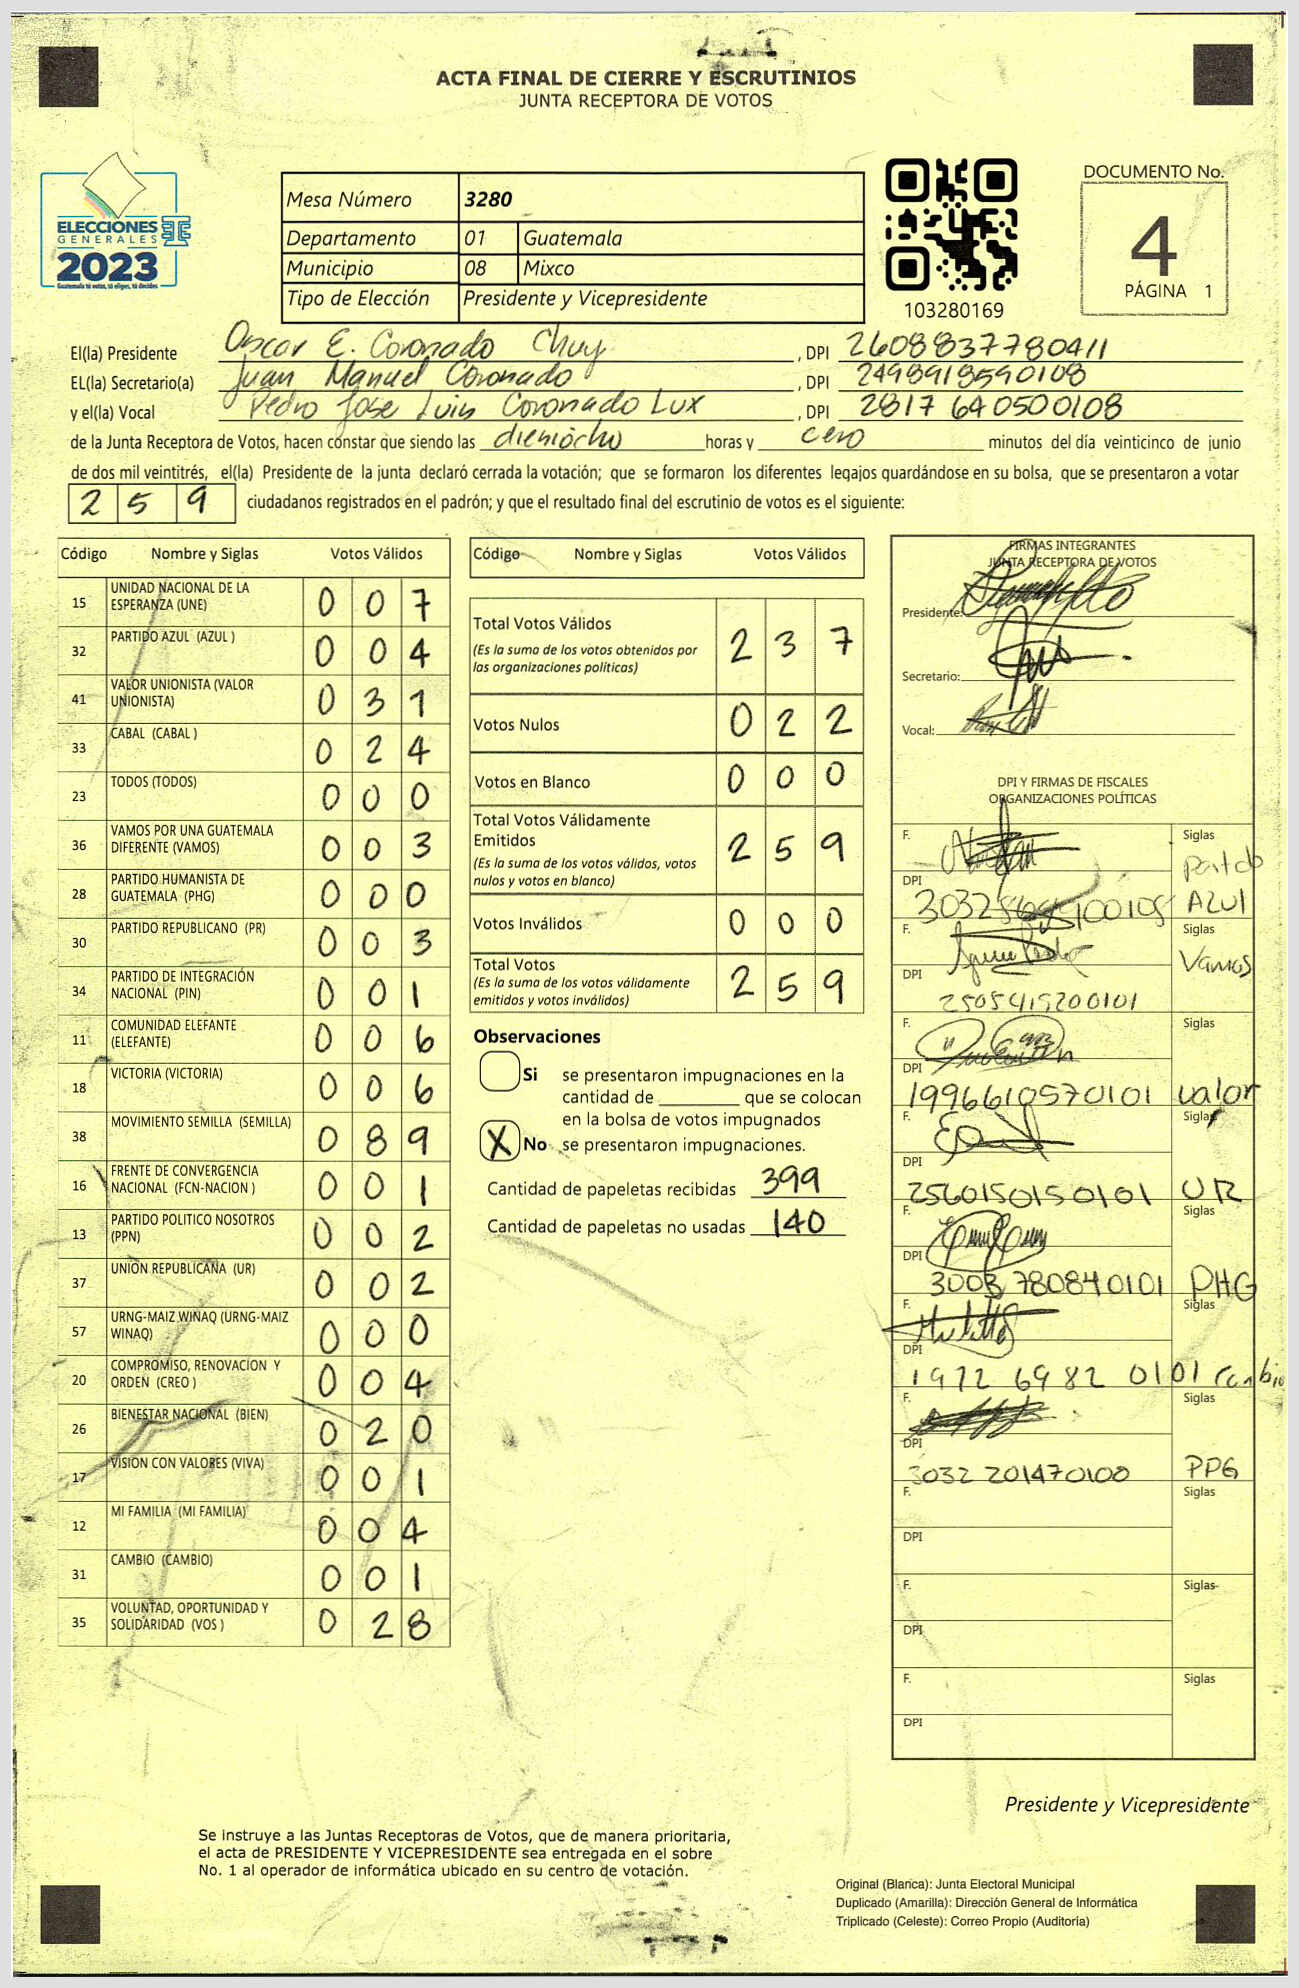 ACTA FINAL DE CIERRE Y ESCRUTINIOS
JUNTA RECEPTORA DE VOTOS
ELECCIONES
GENERALES
2023
Guatemala tú votas, tú eliges, tú decides
Mesa Número 3280
Departamento 01 Guatemala
Municipio 08 Mixco
Tipo de Elección Presidente y Vicepresidente
103280169
DOCUMENTO No.
4
PÁGINA 1
El(la) Presidente Oscar E. Coronado Chuy, DPI 2608837780411
EL(la) Secretario(a) Juan Manuel Coronado, DPI 2498918590108
y el(la) Vocal Pedro Jose Luis Coronado Lux, DPI 2817640500108
de la Junta Receptora de Votos, hacen constar que siendo las dieniocho horas y cero minutos del día veinticinco de junio
de dos mil veintitrés, el(la) Presidente de la junta declaró cerrada la votación; que se formaron los diferentes legajos guardándose en su bolsa, que se presentaron a votar
259 ciudadanos registrados en el padrón; y que el resultado final del escrutinio de votos es el siguiente:
Código Nombre y Siglas Votos Válidos
15 UNIDAD NACIONAL DE LA ESPERANZA (UNE) 007
32 PARTIDO AZUL (AZUL ) 004
41 VALOR UNIONISTA (VALOR UNIONISTA) 031
33 CABAL (CABAL ) 024
23 TODOS (TODOS) 000
36 VAMOS POR UNA GUATEMALA DIFERENTE (VAMOS) 003
28 PARTIDO HUMANISTA DE GUATEMALA (PHG) 000
30 PARTIDO REPUBLICANO (PR) 003
34 PARTIDO DE INTEGRACIÓN NACIONAL (PIN) 001
11 COMUNIDAD ELEFANTE (ELEFANTE) 006
18 VICTORIA (VICTORIA) 006
38 MOVIMIENTO SEMILLA (SEMILLA) 089
16 FRENTE DE CONVERGENCIA NACIONAL (FCN-NACION ) 001
13 PARTIDO POLITICO NOSOTROS (PPN) 002
37 UNION REPUBLICANA (UR) 002
57 URNG-MAIZ WINAQ (URNG-MAIZ WINAQ) 000
20 COMPROMISO, RENOVACION Y ORDEN (CREO ) 004
26 BIENESTAR NACIONAL (BIEN) 020
17 VISION CON VALORES (VIVA) 001
12 MI FAMILIA (MI FAMILIA) 004
31 CAMBIO (CAMBIO) 001
35 VOLUNTAD, OPORTUNIDAD Y SOLIDARIDAD (VOS ) 028
Código Nombre y Siglas Votos Válidos
Total Votos Válidos 237
(Es la suma de los votos obtenidos por
las organizaciones políticas)
Votos Nulos 022
Votos en Blanco 000
Total Votos Válidamente
Emitidos 259
(Es la suma de los votos válidos, votos
nulos y votos en blanco)
Votos Inválidos 000
Total Votos 259
(Es la suma de los votos válidamente
emitidos y votos inválidos)
Observaciones
Si se presentaron impugnaciones en la
cantidad de ________ que se colocan
en la bolsa de votos impugnados
X No se presentaron impugnaciones.
Cantidad de papeletas recibidas 399
Cantidad de papeletas no usadas 140
FIRMAS INTEGRANTES
JUNTA RECEPTORA DE VOTOS
Presidente:
Secretario:
Vocal:
DPI Y FIRMAS DE FISCALES
ORGANIZACIONES POLÍTICAS
F. Siglas
Partido
DPI
AZUl
F. Siglas
Vamos
DPI
2505419200101
F. Siglas
DPI
1996610570101 valor
F. Siglas
DPI
2560150150101 UR
F. Siglas
DPI
3003780840101 PHG
F. Siglas
DPI
1972 6982 0101 cambio
F. Siglas
DPI
3032 201470100 PPG
F. Siglas
DPI
F. Siglas
DPI
F. Siglas
DPI
Presidente y Vicepresidente
Se instruye a las Juntas Receptoras de Votos, que de manera prioritaria,
el acta de PRESIDENTE Y VICEPRESIDENTE sea entregada en el sobre
No. 1 al operador de informática ubicado en su centro de votación.
Original (Blanca): Junta Electoral Municipal
Duplicado (Amarilla): Dirección General de Informática
Triplicado (Celeste): Correo Propio (Auditoría)